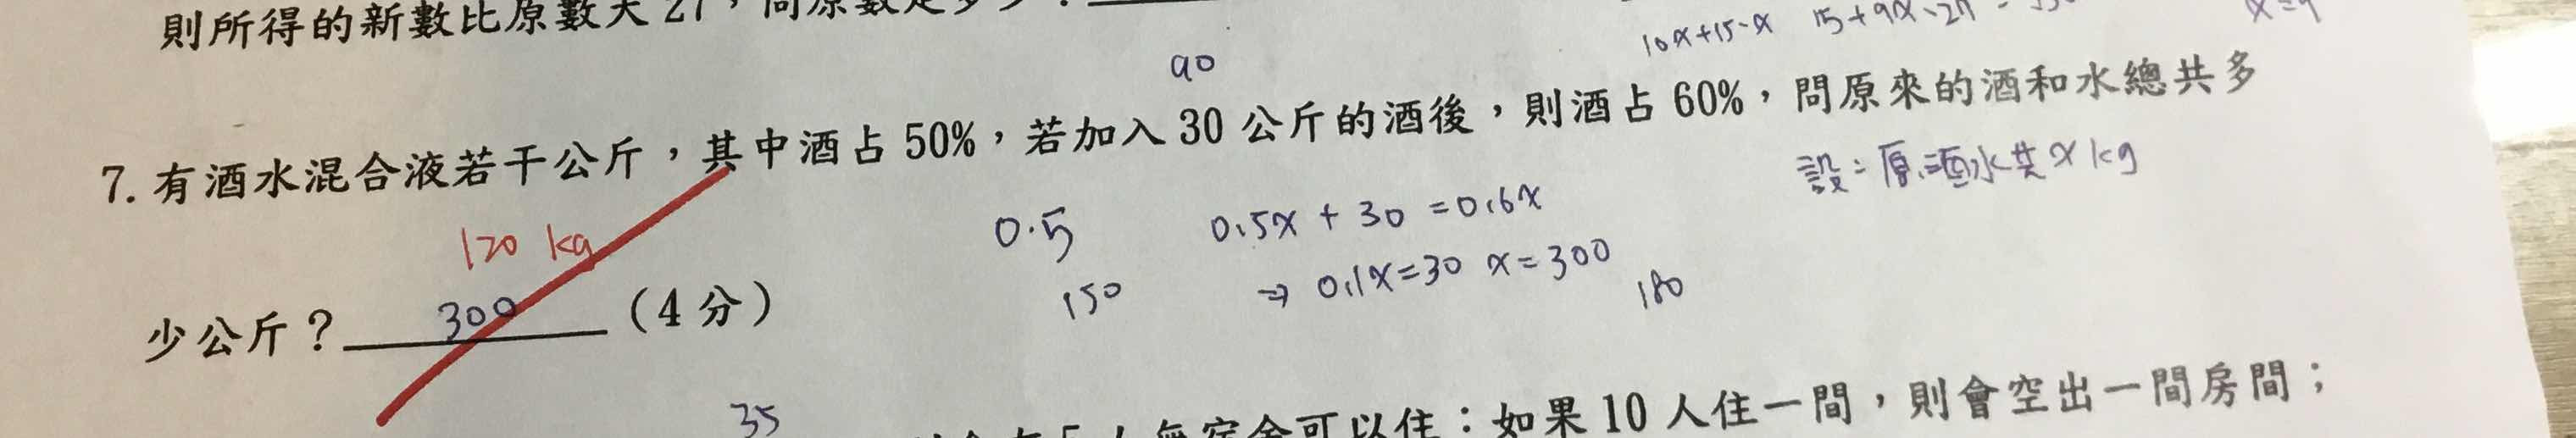 則所得的新數比原數大 27，問原數是多少？
10x+15-x 15+9x-27
x=9
90
7. 有酒水混合液若干公斤，其中酒占 50%，若加入 30 公斤的酒後，則酒占 60%，問原來的酒和水總共多
設:原酒水共 x kg
0.5 0.5x + 30 = 0.6x
120 kg
少公斤？ 300 （4 分）
150 ⇒ 0.1x=30 x=300 180
35
5 人無宿舍可以住；如果 10 人住一間，則會空出一間房間；